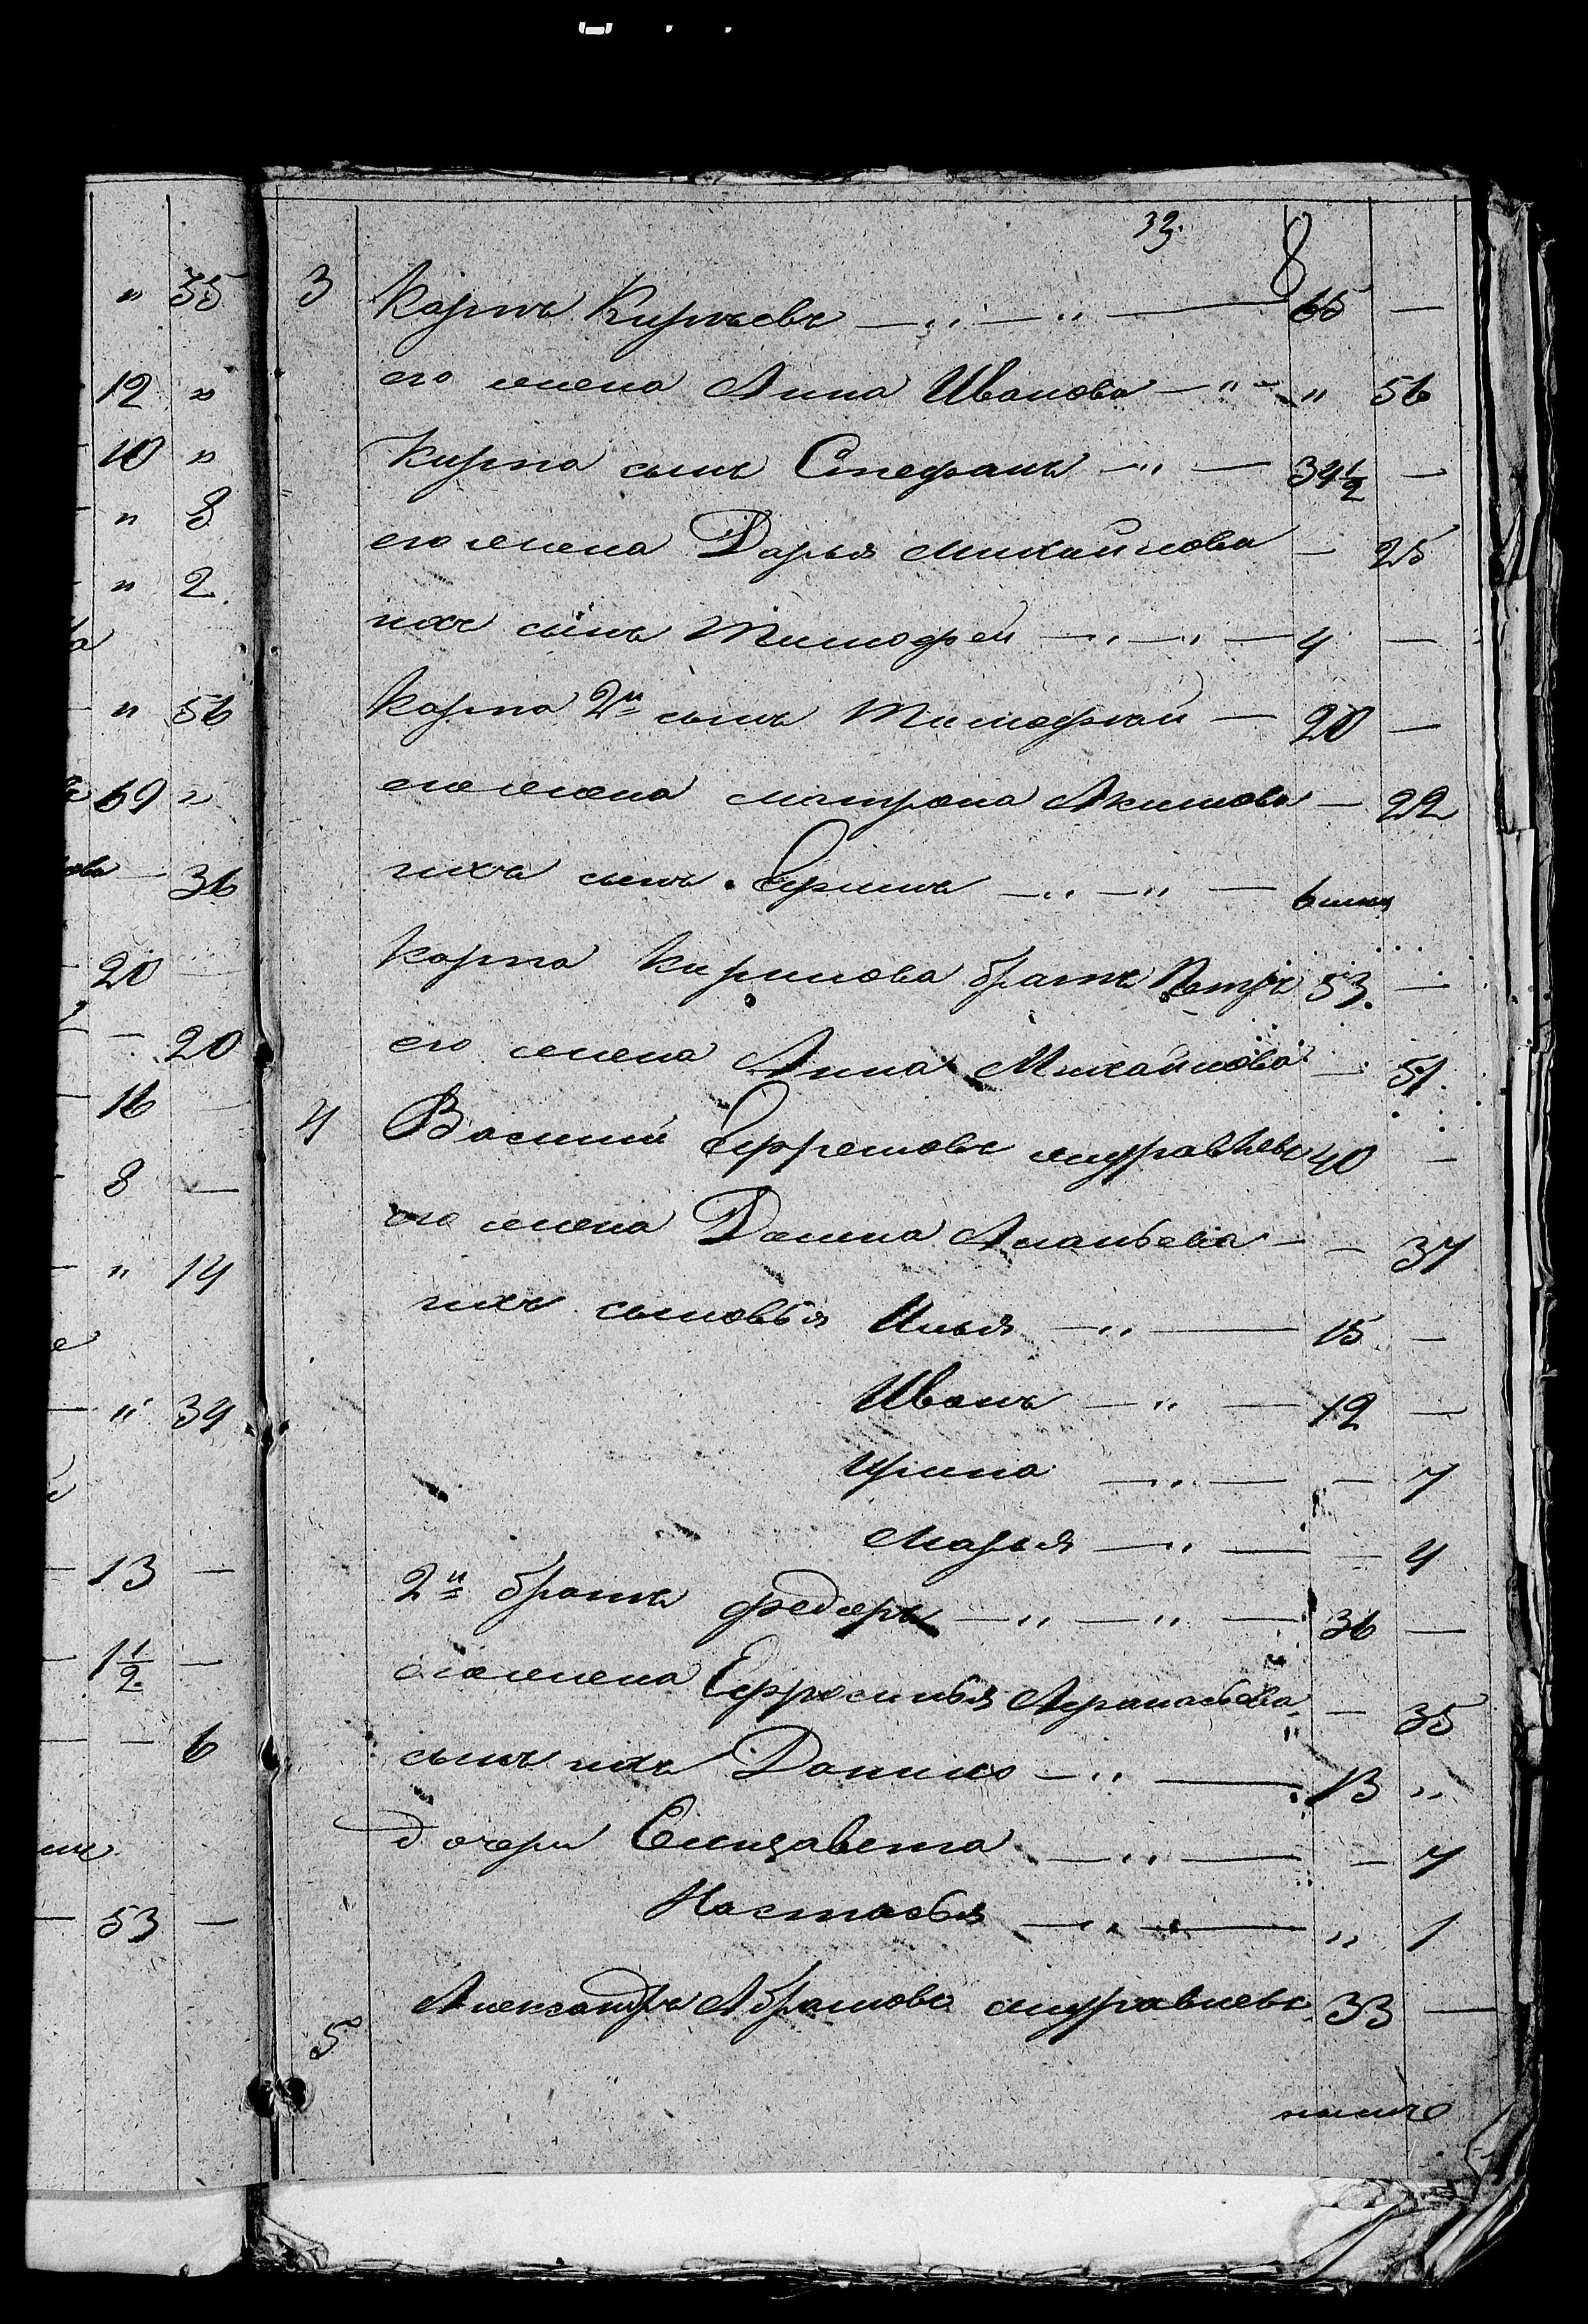 " 35
12 "
10 "
" 8
" 2
" 56
69 "
36
20 —
— 20
16 —
8 —
" 14
" 39
13 —
1½ —
— 6
53 —
39. 8
3 Карпъ Кирпъевъ — " — " — 65 —
его жена Анна Иванова — " — " 56
Кирпа сынъ Стефанъ — " — 34½ —
его жена Дарья Михайлова — 25
ихъ сынъ Тимофей — " — " — 4 —
Карпа 2й сынъ Тимофей — 20 —
его жена Матрена Акимова — 22
ихъ сынъ Ефимъ — " — " — 6
Карпа Кирилова братъ Петръ 53. —
его жена Анна Михайлова — 51
4 Василий Ефремовъ Журавлевъ 40 —
его жена Домна Ананьева — — 37
ихъ сыновья Илья — " — 15 —
Иванъ — " — 12 —
Ирина — " — — 7
Марья — " — — 4
2й братъ Федоръ — " — " — 36 —
его жена Ефросинья Афанасьева — 35
сынъ ихъ Данило — " — 13 "
дочери Елизавета — " — — 7
Настасья — " — " 1
5 Александръ Абрамовъ Журавлевъ 33 —